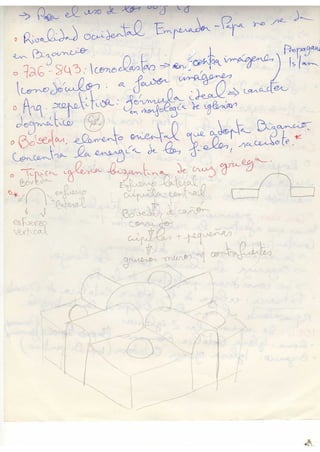 → Por el uso de los
• Rivalidad occidental Emperador - Papa no se da
en Bizancio
• 726 - 843: Iconoclastas → en contra imágenes
Iconodoulos: a favor imágenes
Propagan
Islam
• Arq. repetitiva: fórmula ideal ⇒ carácter
dogmático en morfología de iglesias
• Bóvedas, elemento oriental que adopta Bizancio.
Concentra la energía de los fieles, sacerdote. *
• Típica iglesia bizantina de cruz griega.
* Bóveda
esfuerzo
lateral
esfuerzo
vertical
Esfuerzo lateral
cúpula central
↓
Bóvedas de cañón
corridos
↓
cúpulas + pequeñas
↓
gruesos muros y contrafuertes